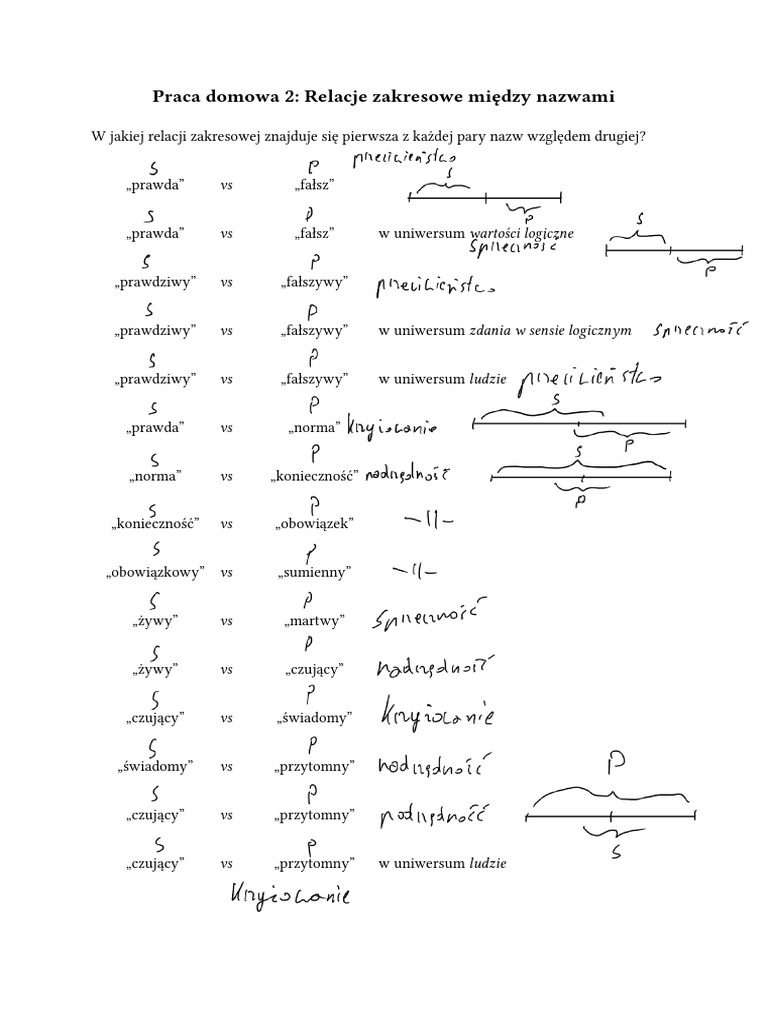 Praca domowa 2: Relacje zakresowe między nazwami
W jakiej relacji zakresowej znajduje się pierwsza z każdej pary nazw względem drugiej?
S P przeciwieństwo S
„prawda” vs „fałsz”
S P P S
„prawda” vs „fałsz” w uniwersum wartości logiczne
S P sprzeczność P
„prawdziwy” vs „fałszywy” przeciwieństwo
S P
„prawdziwy” vs „fałszywy” w uniwersum zdania w sensie logicznym sprzeczność
S P
„prawdziwy” vs „fałszywy” w uniwersum ludzie przeciwieństwo
S P S
„prawda” vs „norma” krzyżowanie
S P S P
„norma” vs „konieczność” nadrzędność
S P P
„konieczność” vs „obowiązek” —||—
S P
„obowiązkowy” vs „sumienny” —||—
S P
„żywy” vs „martwy” sprzeczność
S P
„żywy” vs „czujący” nadrzędność
S P
„czujący” vs „świadomy” krzyżowanie
S P P
„świadomy” vs „przytomny” nadrzędność
S P
„czujący” vs „przytomny” podrzędność
S P S
„czujący” vs „przytomny” w uniwersum ludzie
krzyżowanie